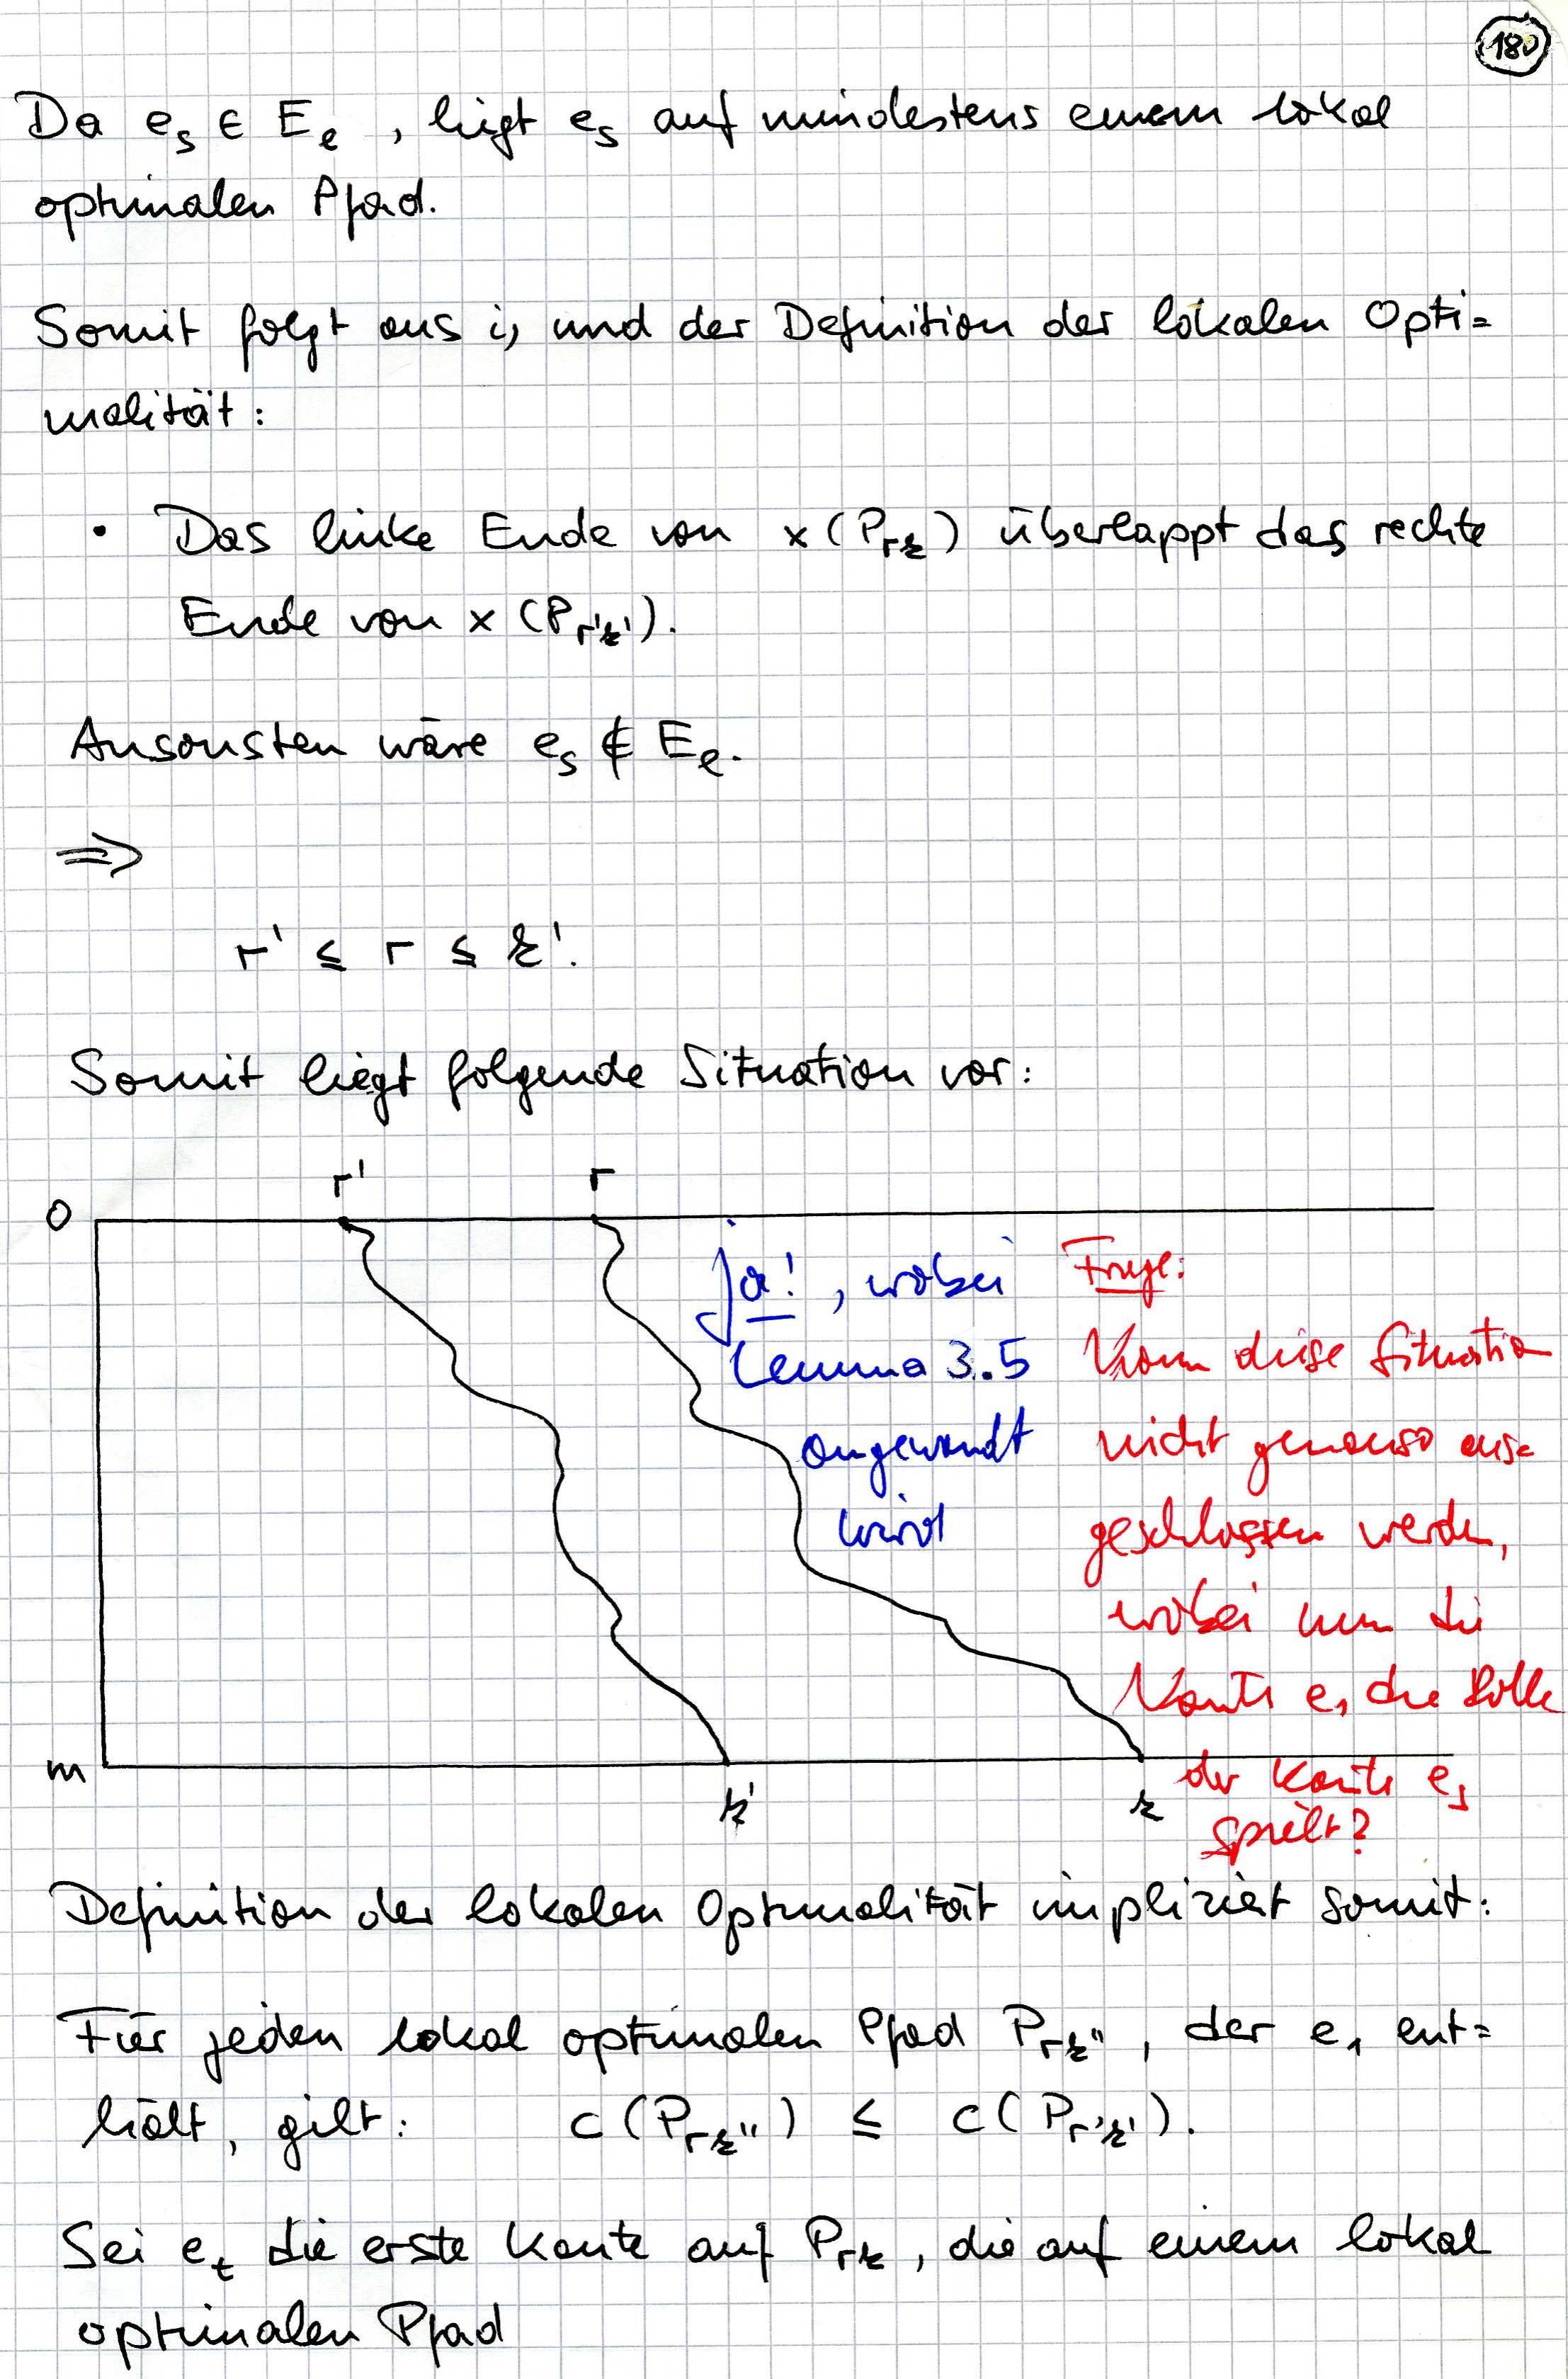 180
Da e_s ∈ E_e, liegt e_s auf mindestens einem lokal
optimalen Pfad.
Somit folgt aus i) und der Definition der lokalen Opti=
malität:
• Das linke Ende von x(P_rk) überlappt das rechte
Ende von x(P_r'k').
Ansonsten wäre e_s ∉ E_e.
⇒
r' ≤ r ≤ k'.
Somit liegt folgende Situation vor:
r' r
0
ja!, wobei
Lemma 3.5
angewandt
wird
Frage:
Kann diese Situation
nicht genauso aus=
geschlossen werden,
wobei nun die
Kante e_1 die Rolle
der Kante e_s
spielt?
m
k' k
Definition der lokalen Optimalität impliziert somit:
Für jeden lokal optimalen Pfad P_rk'', der e_1 ent=
hält, gilt: c(P_rk'') ≤ c(P_r'k').
Sei e_t die erste Kante auf P_rk, die auf einem lokal
optimalen Pfad